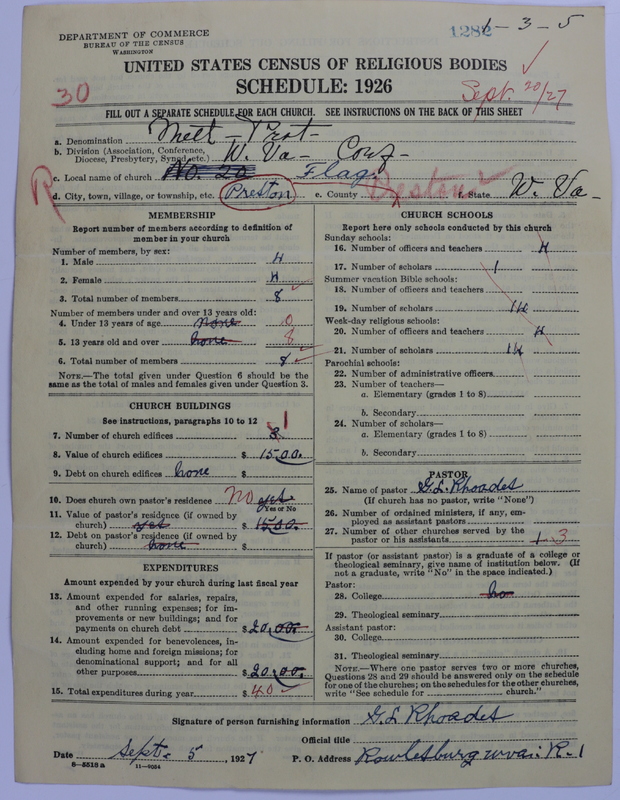 DEPARTMENT OF COMMERCE
BUREAU OF THE CENSUS
WASHINGTON
1282 1-3-5
UNITED STATES CENSUS OF RELIGIOUS BODIES
SCHEDULE: 1926
30
Sept. 20/27
FILL OUT A SEPARATE SCHEDULE FOR EACH CHURCH. SEE INSTRUCTIONS ON THE BACK OF THIS SHEET
a. Denomination Meth - Prot -
b. Division (Association, Conference, Diocese, Presbytery, Synod, etc.) W. Va - Conf -
c. Local name of church No. 20 Flag.
d. City, town, village, or township, etc. Preston e. County Preston f. State W. Va -
MEMBERSHIP
Report number of members according to definition of member in your church
Number of members, by sex:
1. Male 4
2. Female 4
3. Total number of members 8
Number of members under and over 13 years old:
4. Under 13 years of age none 0
5. 13 years old and over none 8
6. Total number of members 8
NOTE.—The total given under Question 6 should be the same as the total of males and females given under Question 3.
CHURCH BUILDINGS
See instructions, paragraphs 10 to 12
7. Number of church edifices 1
8. Value of church edifices $ 1500.
9. Debt on church edifices none $
10. Does church own pastor's residence No yes
Yes or No
11. Value of pastor's residence (if owned by church) yes $ 1500.
12. Debt on pastor's residence (if owned by church) none $
EXPENDITURES
Amount expended by your church during last fiscal year
13. Amount expended for salaries, repairs, and other running expenses; for improvements or new buildings; and for payments on church debt $ 20.00.
14. Amount expended for benevolences, including home and foreign missions; for denominational support; and for all other purposes $ 20.00.
15. Total expenditures during year $ 40
CHURCH SCHOOLS
Report here only schools conducted by this church
Sunday schools:
16. Number of officers and teachers 4
17. Number of scholars 1
Summer vacation Bible schools:
18. Number of officers and teachers
19. Number of scholars 14
Week-day religious schools:
20. Number of officers and teachers 4
21. Number of scholars 14
Parochial schools:
22. Number of administrative officers
23. Number of teachers—
a. Elementary (grades 1 to 8)
b. Secondary
24. Number of scholars—
a. Elementary (grades 1 to 8)
b. Secondary
PASTOR
25. Name of pastor G. L. Rhoades
(If church has no pastor, write "None")
26. Number of ordained ministers, if any, employed as assistant pastors
27. Number of other churches served by the pastor or his assistants 3
If pastor (or assistant pastor) is a graduate of a college or theological seminary, give name of institution below. (If not a graduate, write "No" in the space indicated.)
Pastor:
28. College no
29. Theological seminary
Assistant pastor:
30. College
31. Theological seminary
NOTE.—Where one pastor serves two or more churches, Questions 28 and 29 should be answered only on the schedule for one of the churches; on the schedules for the other churches, write "See schedule for church."
Signature of person furnishing information G. L Rhoades
Official title
Date Sept. 5, 1927 P. O. Address Rowlesburg wva. R-1
8-5518 a 11-2034